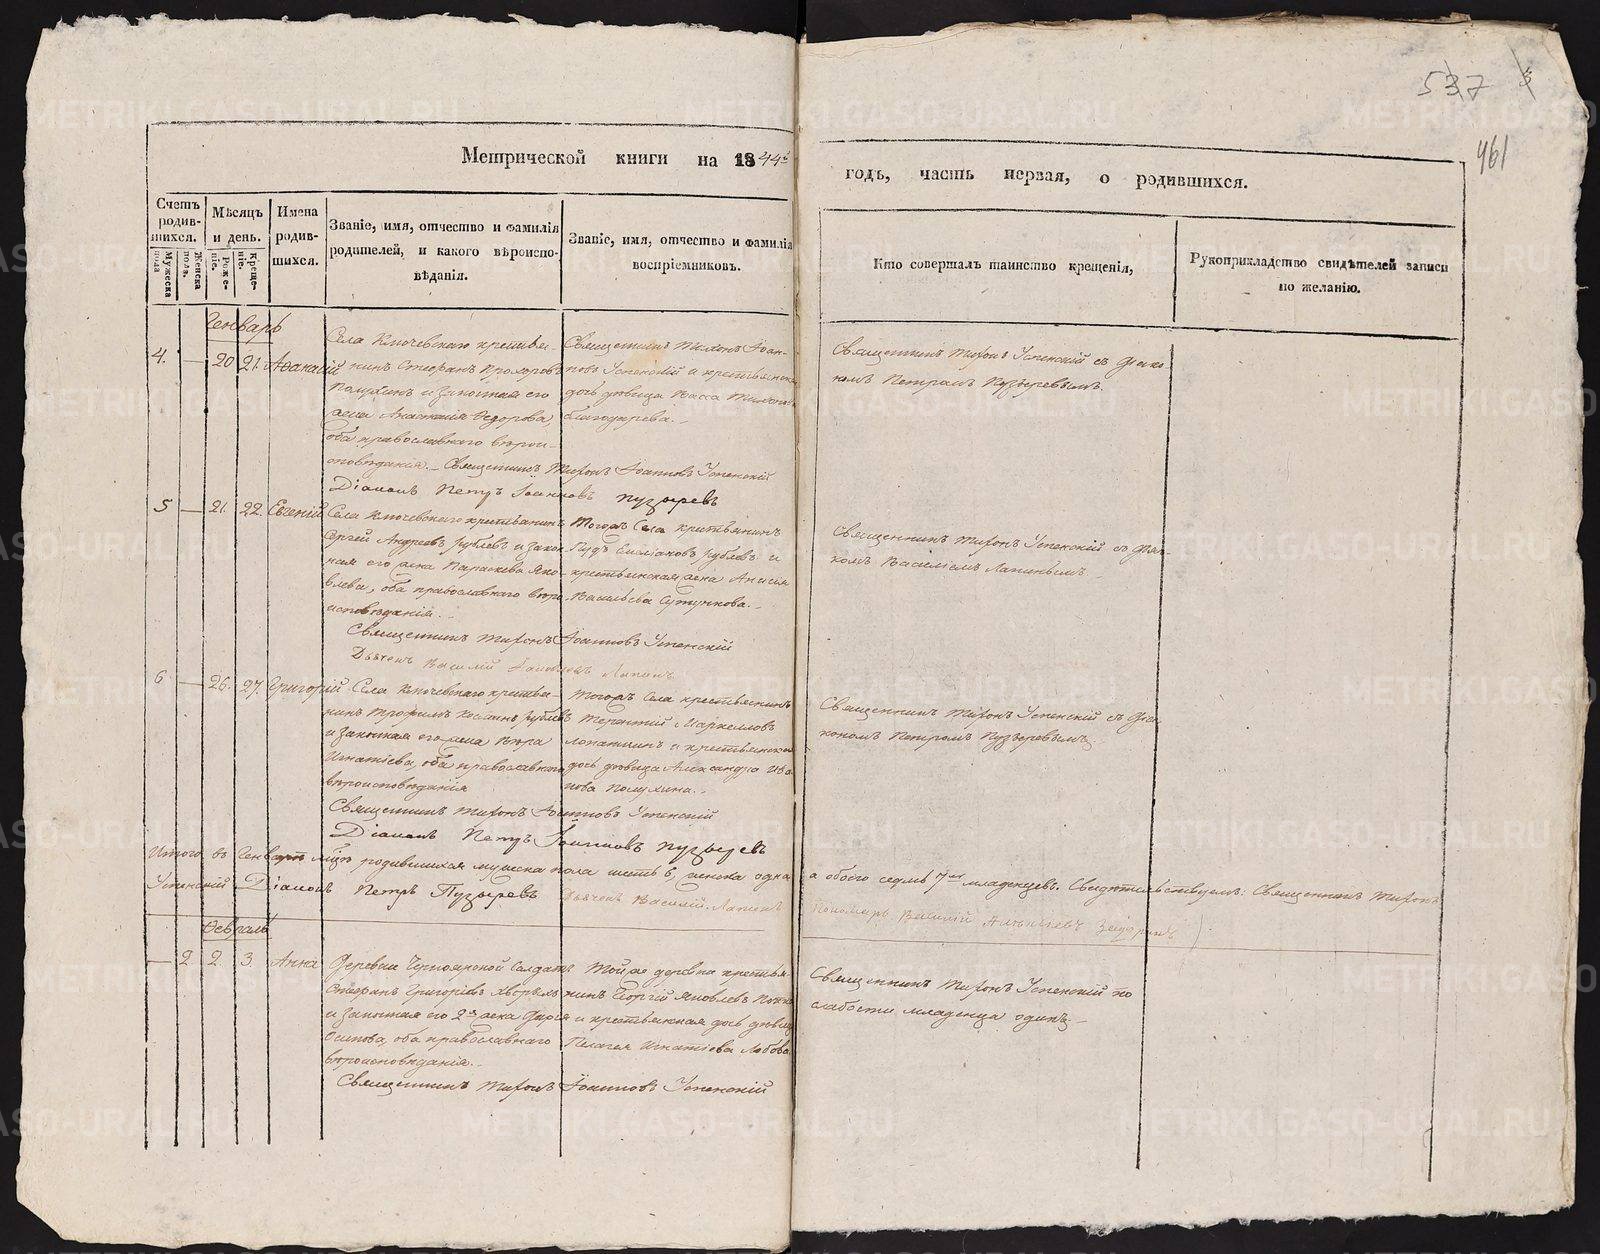 537
461
Метрической книги на 1844й
годъ, часть первая, о родившихся.
Счетъ родившихся.
Мужеска пола
Женска пола.
Мѣсяцъ и день.
Рожденіе.
Крещеніе.
Имена родившихся.
Званіе, имя, отчество и фамилія
родителей, и какого вѣроиспо-
вѣданія.
Званіе, имя, отчество и фамилія
воспріемниковъ.
Кто совершалъ таинство крещенія,
Рукоприкладство свидѣтелей записи
по желанію.
Генварь
4. — 20 21. Афанасій
Села Ключевскаго крестья-
нинъ Стефанъ Прохоровъ
Полухинъ и законная его
жена Анастасія Федорова,
оба православнаго вѣрои-
сповѣданія. – Священникъ Тихонъ Іоанновъ Успенскій
Діаконъ Петръ Іоанновъ Пузыревъ
Священникъ Тихонъ Іоан-
новъ Успенскій и крестьянска
дочь дѣвица Васса Тихонова
Священникъ Тихонъ Успенскій съ Діако
номъ Петромъ Пузыревымъ.
5 — 21. 22. Евгеній
Села Ключевскаго крестьянинъ
Сергей Андреевъ Рублевъ и закон
ная его жена Параскева Яко-
влева, оба православнаго вѣро-
исповѣданія. –
Священникъ Тихонъ Іоанновъ Успенскій
Дьячекъ Василій Лапинъ
Тогожъ Села крестьянинъ
Рублевъ и
крестьянская жена Анисья
Васильева Сутункова. –
Священникъ Тихонъ Успенскій съ Дьяч-
комъ Василіемъ Лапинымъ
6 — 26. 27. Григорій
Села Ключевскаго крестья-
нинъ Трофимъ Косминъ Рублевъ
и законная его жена Вѣра
Игнатіева, оба православнаго
вѣроисповѣданія
Священникъ Тихонъ Іоанновъ Успенскій
Діаконъ Петръ Іоанновъ Пузыревъ
Тогожъ Села крестьянинъ
Терентій Маркелловъ
Лопатинъ и крестьянска
дочь дѣвица Александра Ива
нова Полухина. –
Священникъ Тихонъ Успенскій съ Діа
кономъ Петромъ Пузыревымъ.
Итого въ Генварѣ мцѣ родившихся мужеска пола шесть 6, женска одна
а обоего седмь 7мь младенцевъ. Свидѣтельствуемъ: Священникъ Тихонъ
Успенскій Діаконъ Петръ Пузыревъ Дьячекъ Василій Лапинъ
Пономарь Василій
Февраль
— 2 2. 3. Анна
Деревни Черноярской Солдатъ
Стефанъ Григоріевъ
и законная его 2я жена Дарья
Осипова, оба православнаго
вѣроисповѣданія. –
Священникъ Тихонъ Іоанновъ Успенскій
Той же деревни крестья-
нинъ Георгій Яковлевъ
и крестьянская дочь дѣвица
Пелагея Игнатіева Лобова
Священникъ Тихонъ Успенскій по
слабости младенца одинъ. –